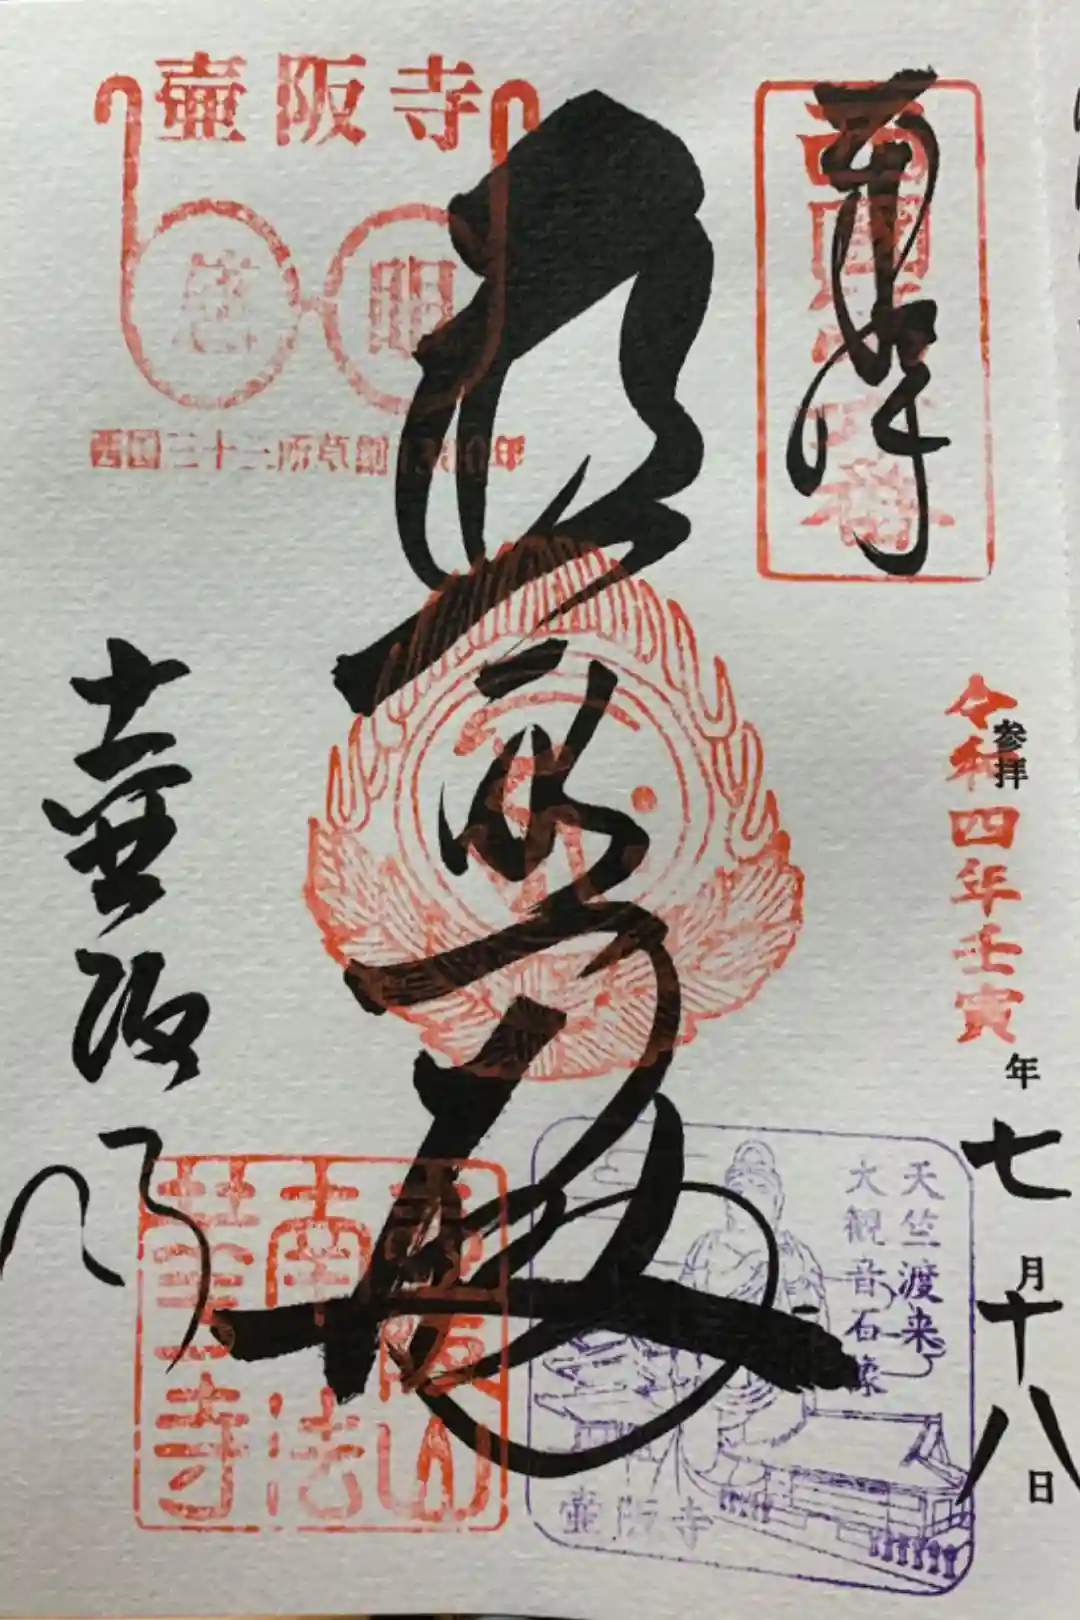 奉拝
西国第六番
参拝
令和四年壬寅
年七月十八日
普照殿
壷阪寺
眼
西国三十三所草創1300年
天竺渡来
大観音石像
壷阪寺
壷阪山
南法
華寺
壷阪寺